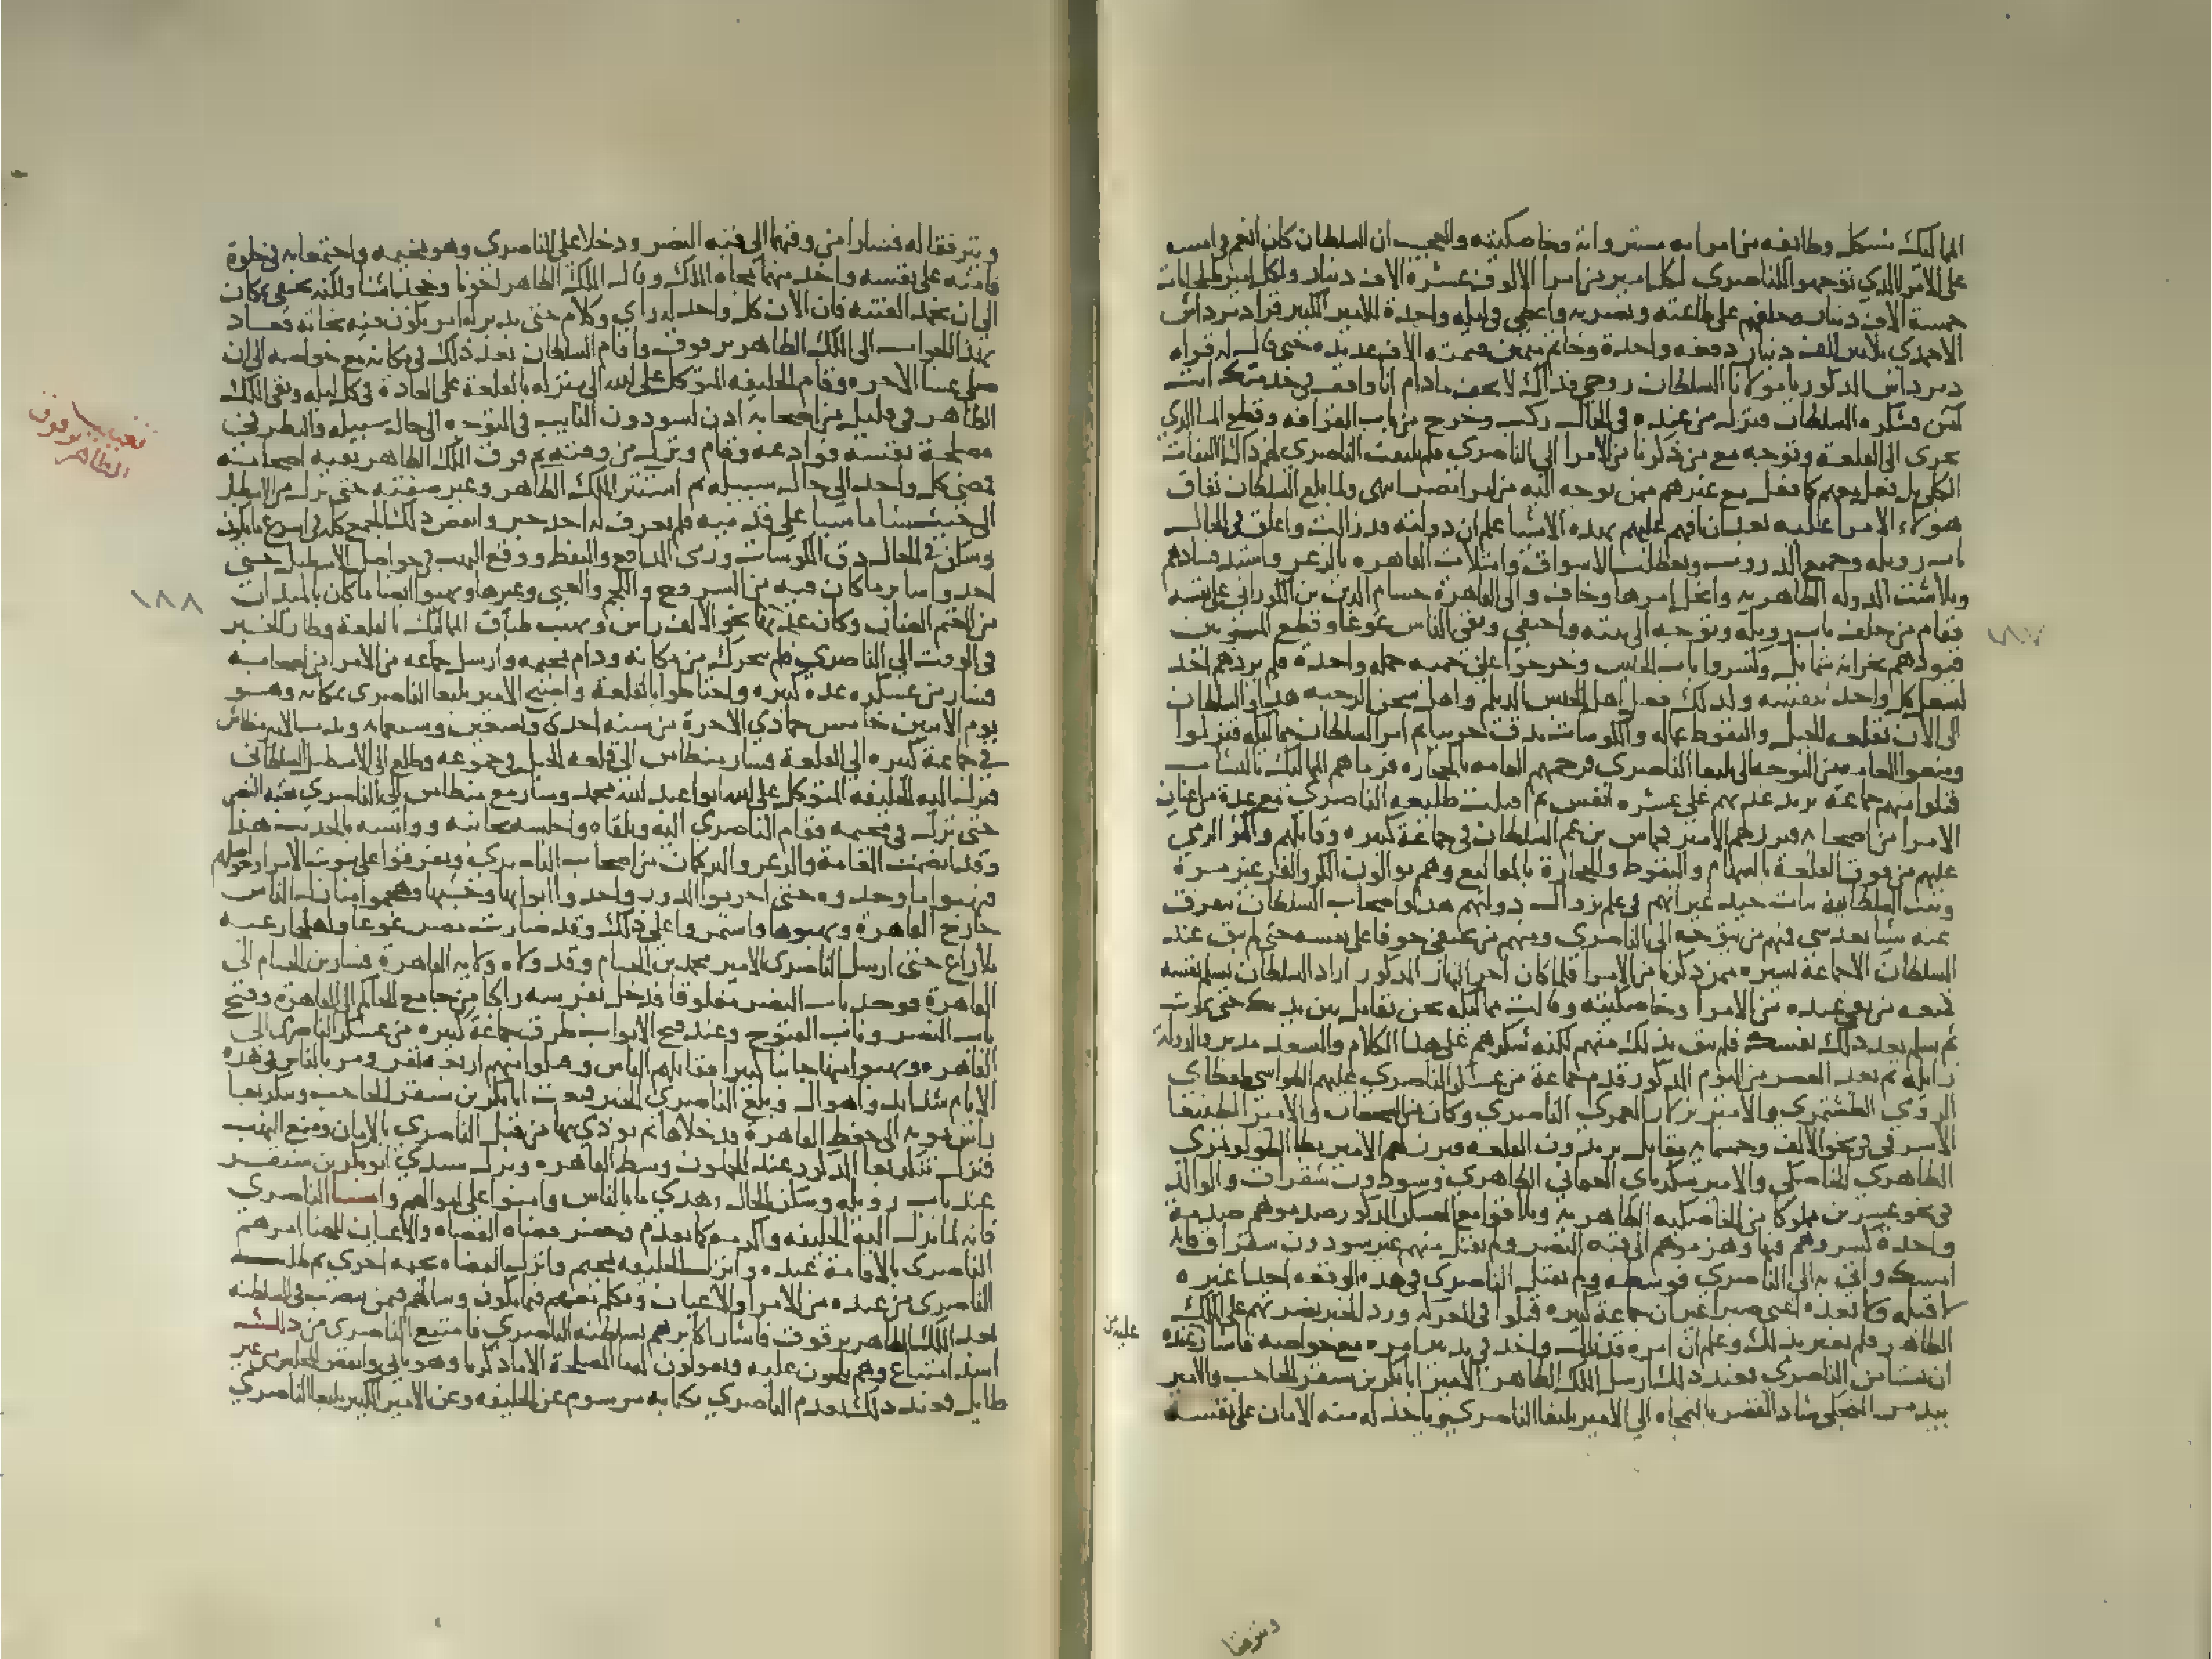 المماليك بشكل وطايفه من امرايه مستر وانه وخاصكيته والعجب ان السلطان كان انعم في امسه
على الامرا الذي توجهوا للناصري لكل امير من امرا الالوف عشرة الاف دينار ولكل امير طبلخاناة
خمسة الاف دينار وحلفهم على طاعته ونصرته واعطى في ليله واحدة للامير الكبير قرا دمرداش
الاحمدي ثلاثين الف دينار دفعه واحدة وخاتم ثمين قيمته الاف عديده حتى قال له قرا
دمرداش المذكور يا مولانا السلطان روحي فداك لا تخف ما دام انا واقف في خدمتك انت
آمن فشكره السلطان ونزل من عنده في الحال ركب وخرج من باب القرافه وقطع الما الذي
يجري الى القلعة وتوجه مع من ذكرنا من الامرا الى الناصري فلم يلتفت الناصري لهم ذاك الالتفات
الكلي بل فعل معهم كما فعل مع غيرهم ممن توجه اليه من امرا مصر انتهى ولما بلغ السلطان نفاق
هولاء الامرا عليه بعد ان انعم عليهم بهذه الاشيا علم ان دولته قد زالت واغلق في الحال
باب زويله وجميع الدروب وتعطلت الاسواق وامتلات القاهره بالزعر واشتد فسادهم
وتلاشت الدوله الظاهريه وانحل امرها وخاف والى القاهرة حسام الدين بن الكوراني على نفسه
فقام من خلف باب زويله وتوجه الى بيته واختفى وبقى الناس غوغا وقطع المسجونين
قيودهم بخزانة شمايل وكسروا باب الحبس وخرجوا على حميه جمله واحده فلم يردهم احد
لشغل كل واحد بنفسه وكذلك فعل اهل الحبس الديلم واهل سجن الرحبه هذا والسلطان
الى الان بقلعه الجبل والنفوط عماله والكوسات تدق حربيا ثم امر السلطان مماليكه فنزلوا
ومنعوا العامه من التوجه الى يلبغا الناصري فرجمهم العامه بالحجاره فرماهم المماليك بالنشاب
قتلوا منهم جماعة تزيد عدتهم على عشره انفس ثم اقبلت طليعه الناصري مع عدة من اعيان
الامرا من اصحابه فبرز لهم الامير قجماس بن عم السلطان في جماعة كبيره وقاتلهم واكثر الرمي
عليهم من فوق القلعة بالسهام والنفوط والحجارة بالمقاليع وهم يوالون الكر والفر غير مرة
وثبت السلطانيه ثبات جيد غير انهم في علم بزوال دولتهم هذا واصحاب السلطان تتفرق
عنه شيا بعد شي فمنهم من يتوجه الى الناصري ومنهم من يختفي خوفا على نفسه حتى لم يبق عند
السلطان الا جماعة يسيره ممن ذكرنا من الامرا فلما كان اخر النهار المذكور اراد السلطان تسلم نفسه
فمنعه من بقى عنده من الامرا وخاصكيته وقالت مماليكه نحن نقاتل بين يديك حتى نموت
ثم سلم بعد ذلك نفسك فلم يثق بذلك منهم لكنه شكرهم على هذا الكلام والسعد مدبر والدولة
زايله ثم بعد العصر من اليوم المذكور قدم جماعة من عسكر الناصري عليهم الطواشي طقطاي
الرومي الطشتمري والامير بزلار العمري الناصري وكان من الشجعان والامير الطنبغا
الاشرفي في نحو الالف وخمسمايه مقاتل يريدون القلعه فبرز لهم الامير بطا الطولوتمري
الظاهري الخاصكي والامير شكرباي العثماني الظاهري وسودون شقراق والوالد
في نحو عشرين مملوكا من الخاصكيه الظاهريه وتلاقوا مع العسكر المذكور صدموهم صدمة
واحدة كسروهم فيها وهزموهم الى قبه النصر ولم يقتل منهم غير سودون شقراق فانه
امسك واتى به الى الناصري فوسطه ولم يقتل الناصري في هذه الوقعه احدا غيره
لا قبله ولا بعده اعني صبرا غير ان جماعة كبيره قتلوا في المعركه ورد الخبر بنصرتهم على الملك
الظاهر فلم يغتر بذلك وعلم ان امره قد زال واخذ في تدبير امره مع خواصه فاشار عليه من عنده
ان يستامن الناصري فعند ذلك ارسل الملك الظاهر الامير ابا بكر بن سنقر الحاجب والامير
بيدمر المنجكي شاد القصر بالنمجاه الى الامير يلبغا الناصري ان ياخذ له منه الامان على نفسه
وترفقا
١٨٧
ويترفقا له فسارا من وقتهما الى قبه النصر ودخلا على الناصري وهو بمخيمه واجتمعا به في خلوة
فامنه على نفسه واخذ منهما نمجاه الملك وقال الملك الظاهر اخونا وخجداشنا ولكنه يختفي بمكان
الى ان تخمد الفتنه فان الان كل واحد له راي وكلام حتى ندبر له امر يكون فيه نجاته فعاد
بهذا الجواب الى الملك الظاهر برقوق واقام السلطان بعد ذلك في مكانه مع خواصه الى ان
صلى عشا الاخره وقام الخليفه المتوكل على الله الى منزله بالقلعة على العادة في كل ليله وبقى الملك
الظاهر في قليل من اصحابه اذن لسودون النايب في التوجه الى حال سبيله والنظر في
مصلحة نفسه فوادعه وقام ونزل من وقته ثم فرق الملك الظاهر بقيه اصحابه
فمضى كل واحد الى حال سبيله ثم استتر الملك الظاهر وغير صفته حتى نزل من الاسطبل
الى حيث شا ماشيا على قدميه فلم يعرف له احد خبر وانفض ذلك الجمع كله في اسرع ما يكون
وسكن في الحال دق الكوسات ورمى المدافع والنفط ووقع النهب في حواصل الاسطبل حتى
اخذوا ساير ما كان فيه من السروج واللجم والعبي وغيرها ونهبوا ايضا ما كان بالميدان
من الغنم الضان وكان عدتها نحو الالف راس ونهبت طباق المماليك بالقلعة وطار الخبر
في الوقت الى الناصري فلم يتحرك من مكانه ودام بمخيمه وارسل جماعه من الامرا من اصحابه
فسار من عسكره عده كبيره واحتاطوا بالقلعة واصبح الامير يلبغا الناصري بمكانه وهو
يوم الاثنين خامس جمادي الاخرة من سنه احدى وتسعين وسبعمايه وندب الامير منطاش
في جماعة كبيره الى القلعة فسار منطاش الى قلعه الجبل في جموعه وطلع الى الاسطبل السلطاني
فنزل اليه الخليفه المتوكل على الله ابو عبد الله محمد وسار مع منطاش الى الناصري بقبه النصر
حتى نزل في مخيمه فقام الناصري اليه وتلقاه واجلسه بجانبه ووانسه بالحديث هذا
وقد انضمت العامة والزعر والتركمان من اصحاب الناصري وتفرقوا على بيوت الامرا وحواصلهم
فنهبوا ما وجدوه حتى اخربوا الدور واخذوا ابوابها وخشبها وهجموا منازل الناس
خارج القاهرة ونهبوها واستمروا على ذلك وقد صارت مصر غوغا واهلها رعيه
بلا راع حتى ارسل الناصري الامير محمد بن الحسام وقد ولاه ولايه القاهرة فسار بن الحسام الى
القاهرة فوجد باب النصر مغلوقا فدخل بفرسه راكبا من جامع الحاكم الى القاهرة وفتح
باب النصر وباب الفتوح وعند فتح الابواب طرق جماعة كبيره من عسكر الناصري الى
القاهره ونهبوا منها جانبا كبيرا فقاتلهم الناس وقتلوا منهم اربعه نفر ومر بالناس في هذه
الايام شدايد واهوال وبلغ الناصري الخبر فبعث ابا بكر بن سنقر الحاجب وتنكزبغا
راس نوبه الى حفظ القاهرة فدخلاها ثم نودي بها من قبل الناصري بالامان ومنع النهب
فنزل تنكزبغا المذكور عند الجملون وسط القاهره ونزل سيدي ابو بكر بن سنقر
عند باب زويله وسكن الحال وهدي ما بالناس وامنوا على اموالهم واما الناصري
فانه لما نزل اليه الخليفه واكرمه كما تقدم وحضر قضاه القضاه والاعيان للهنا امرهم
الناصري بالاقامة عنده وانزل الخليفه بمخيم وانزل القضاه بخيمه اخرى ثم طلب
الناصري من عنده من الامرا والاعيان وتكلم معهم فيما يكون وسالهم فيمن ينصب في السلطنه
بعد الملك الظاهر برقوق فاشار اكابرهم بسلطنه الناصري فامتنع الناصري من ذلك
اشد امتناع وهم يلحون عليه ويقولون له ما المصلحة الا ما ذكرنا وهو يابى وانفض المجلس من غير
طايل فعند ذلك تقدم الناصري بكتابه مرسوم عن الخليفه وعن الامير الكبير يلبغا الناصري
١٨٨